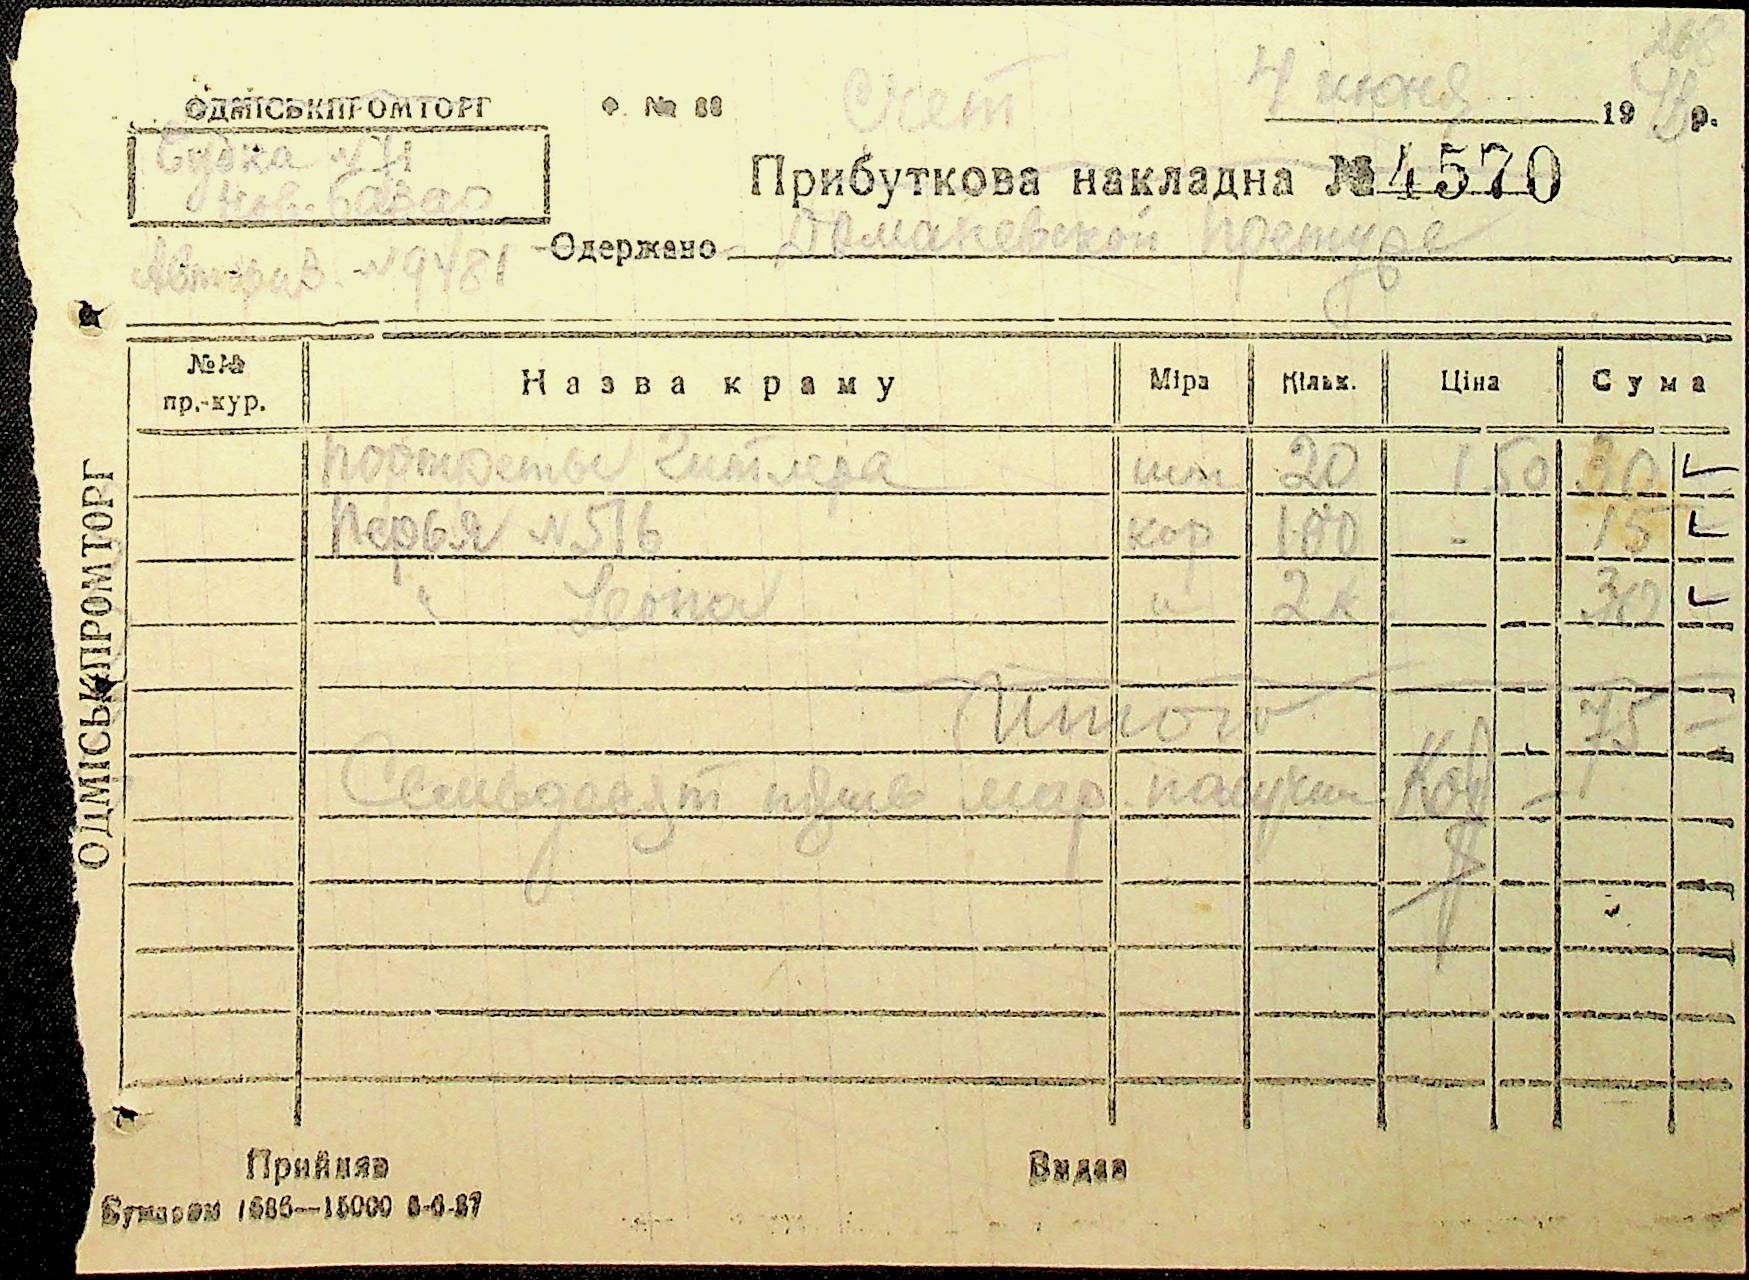 268
ОДМІСЬКПРОМТОРГ Ф. № 88 Счет 4 июня 19 р.
Будка № 71
Нов. базар
Прибуткова накладна № 4570
Авториз. № 9481 Одержано Доманевской претуре
№№ пр.-кур. Назва краму Міра Кільк. Ціна Сума
Портреты Гитлера шт 20 1 50 30
Перья № 516 кор 100 - 15
" Leona " 2 к 30
Итого 75 -
Семьдесят пять мар. получил
ОДМІСЬКПРОМТОРГ
Прийняв Видав
Бумпром 1686—15000 8-6-37